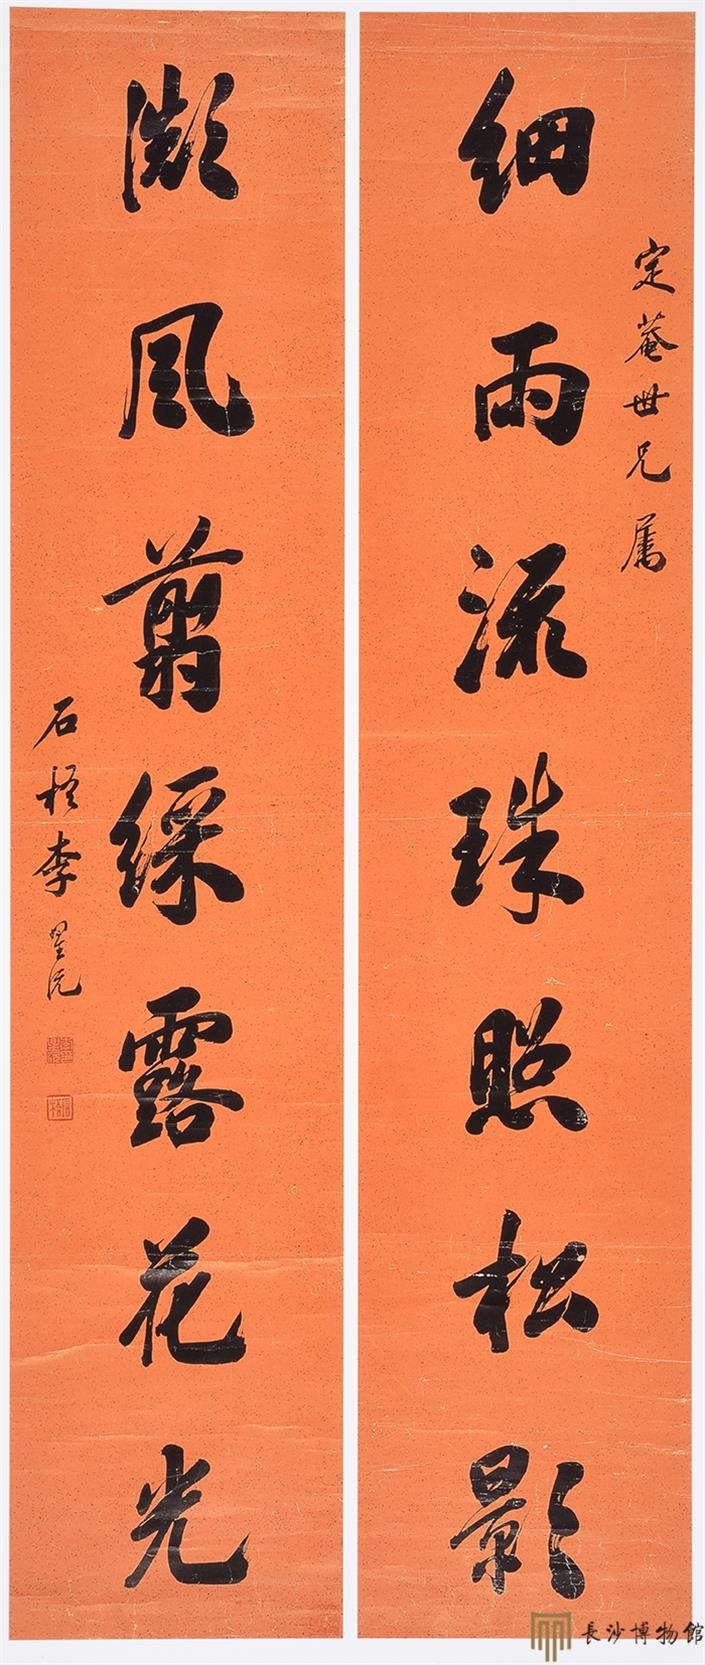 細雨流珠照松影
定菴世兄属
微風翦綵露花光
石梧李星沅
長沙博物館